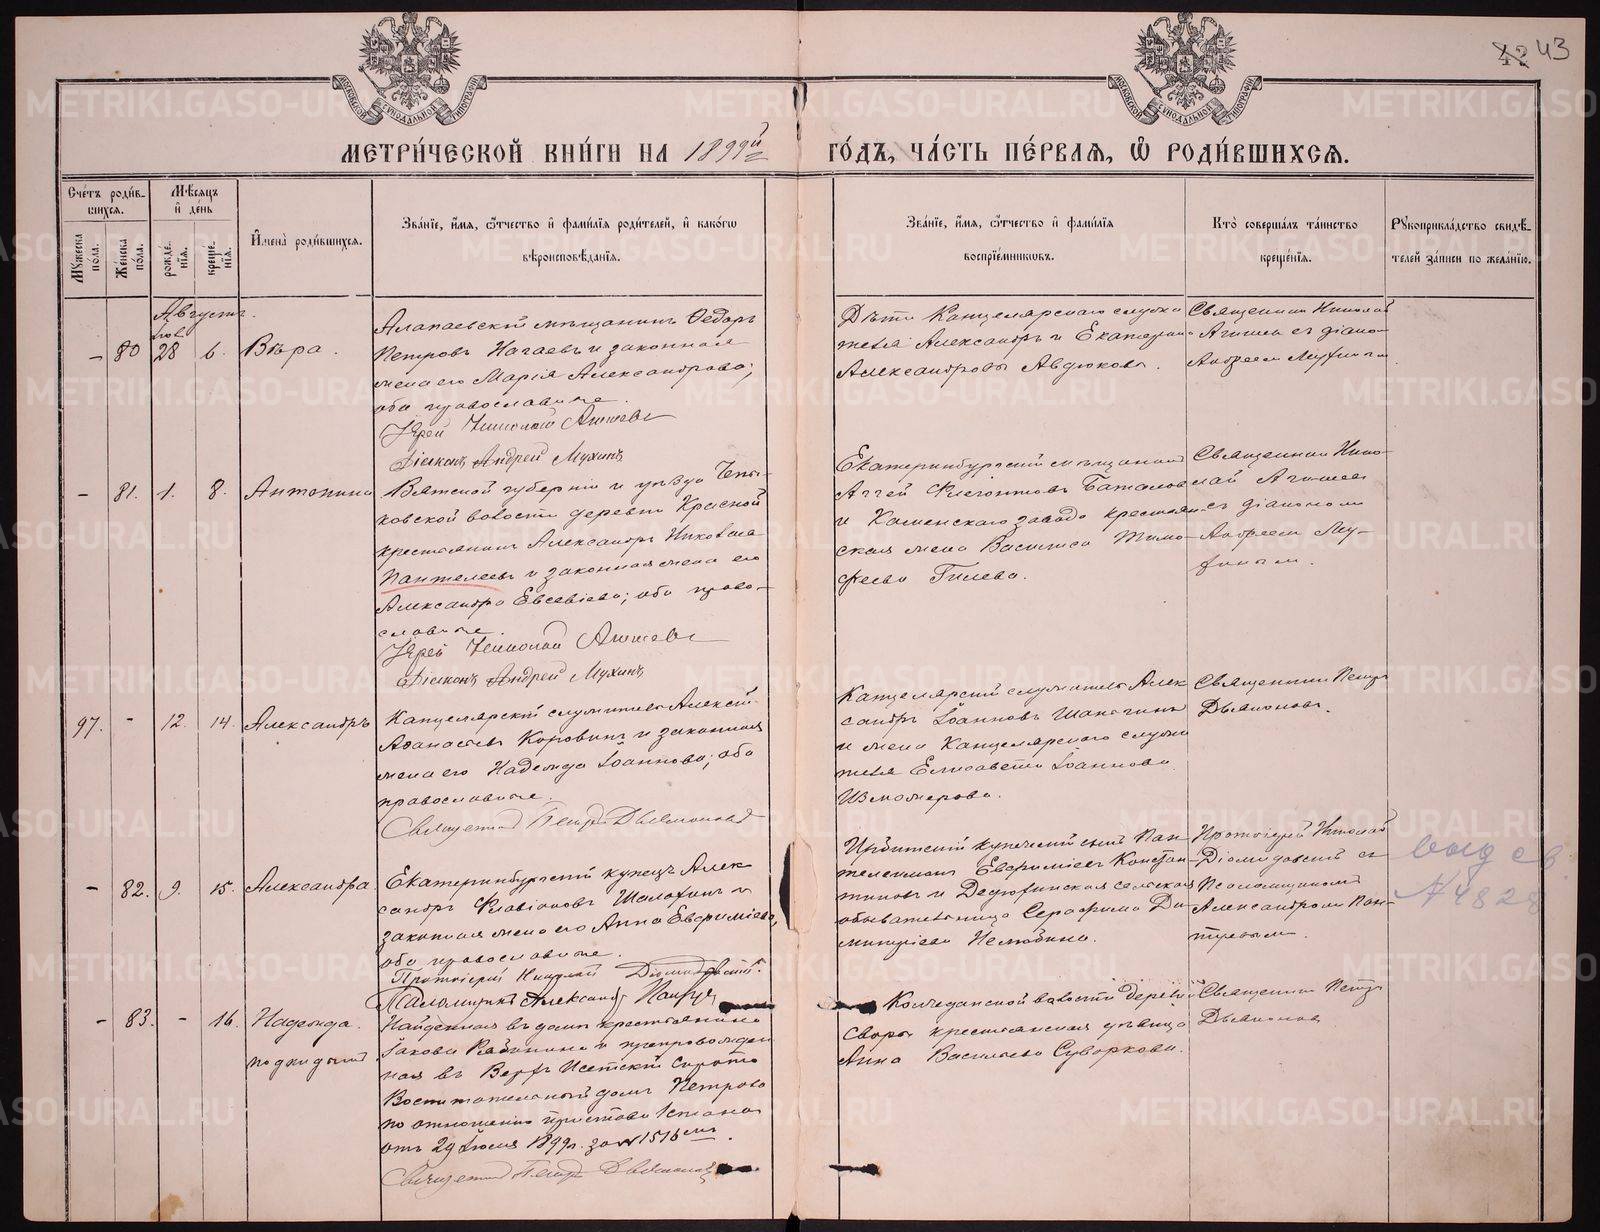 42 43
МЕТРИ́ЧЕСКОЙ КНИ́ГИ НА 1899й
ГО́ДЪ, ЧА́СТЬ ПЕ́РВАЯ, Ѡ РОДИ́ВШИХСЯ.
Сче́тъ роди́в-
шихся.
Му́жеска пола.
Же́нска по́ла.
Мѣ́сяцъ
и҆ де́нь
рожде́-
нїя.
креще́-
нїя.
И҆мена̀ роди́вшихся.
Зва́нїе, и҆́мя, ѻ҆́тчество и҆ фами́лїя роди́телей, и҆ како́гѡ
вѣроисповѣ́данїя.
Зва́нїе, и҆́мя, ѻ҆́тчество и҆ фами́лїя
воспрїе́мниковъ.
Кто̀ соверша́лъ та́инство
креще́нїя.
Рꙋкоприкла́дство свидѣ́-
телей за́писи по жела́нїю.
Августъ.
Іюль
– 80 28 6. Вѣра.
Алапаевскій мѣщанинъ Ѳедоръ
Петровъ Нагаевъ и законная
жена его Марія Александрова;
оба православные.
Іерей Николай Агишевъ
Діаконъ Андрей Мухинъ
Дѣти Канцелярскаго служи
теля Александръ и Екатерина
Александровы Авдюковы.
Священникъ Николай
Агишевъ съ діако-
Андреемъ Мухинымъ
– 81. 1. 8. Антонина
Вятской губерніи и уѣзда
ковской волости деревни Красной
крестьянинъ Александръ Николаевъ
Пантелеевъ и законная жена его
Александра Евсевіева; оба право-
славные.
Іерей Николай Агишевъ
Діаконъ Андрей Мухинъ
Екатеринбургскій мѣщанинъ
Аггей Флегонтовъ Баталовъ
и Каменскаго завода крестьян-
ская жена Васса Тимо-
феева Гилева.
Священникъ Нико-
лай Агишевъ
съ діакономъ
Андреемъ Му-
хинымъ.
97. – 12. 14. Александръ
Канцелярскій служитель Алексій
Аѳанасьевъ Коровинъ и законная
жена его Надежда Іоаннова; оба
православные.
Священникъ Петръ Дьяконовъ
Канцелярскій служитель Алек
сандръ Іоанновъ Шанягинъ
и жена Канцелярскаго служи
теля Елисавета Іоаннова
Измомерова.
Священникъ Петръ
Дьяконовъ.
– 82. 9. 15. Александра
Екатеринбургскій купецъ Алек
сандръ Флавіановъ и
законная жена его Анна Евфиміева,
оба православные.
Протоіерей Николай Діомидовскій.
Псаломщикъ Александръ
Ирбитскій купеческій сынъ Пан-
телеимонъ Евфиміевъ Констан-
тиновъ и сельская
обывательница Серафима Ди-
митріева Нелюбина.
Протоіерей Николай
Діомидовскій съ
Псаломщикомъ
Александромъ
выд св.
№ 4828
– 83. – 16. Надежда.
подкидышъ
Найденная въ домѣ крестьянина
Іакова Рябинина и препровожден
ная въ Верхъ Исетскій Сирото
Воспитательный домъ Петрова
по отношенію пристава 1 стана
отъ 29 Іюля 1899 г. за № 1516мъ.
Священникъ Петръ Дьяконовъ
Колчеданской волости деревни
Своры крестьянская дѣвица
Анна Васильева Суворкова.
Священникъ Петръ
Дьяконовъ
METRIKI.GASO-URAL.RU